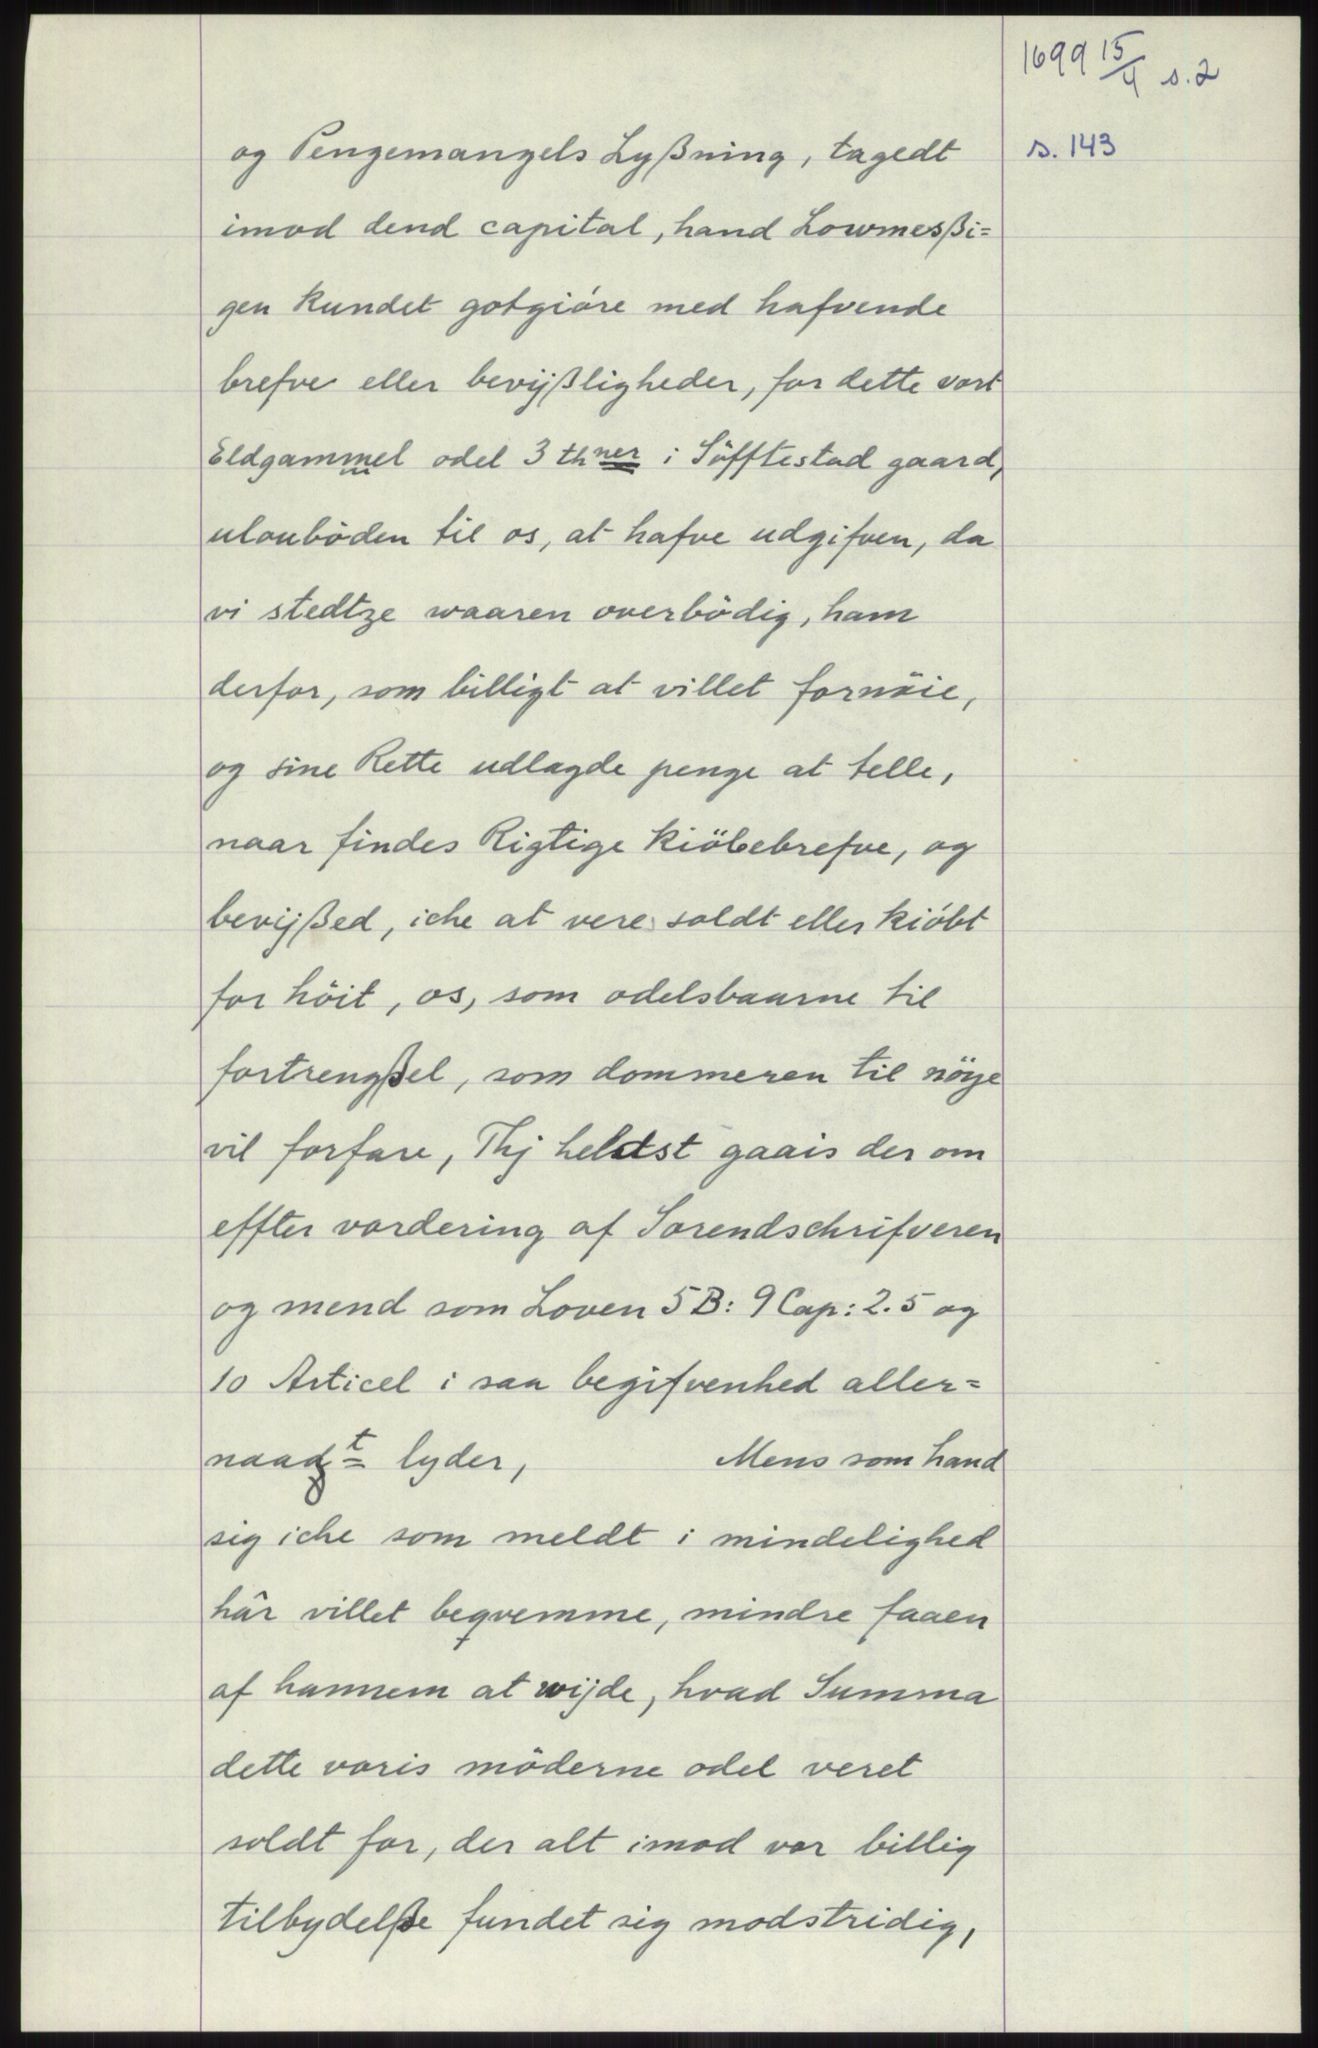 1699 15/4 s.2
og Pengemangels Lyßning, tagedt
s. 143
imod dend capital, hand Lowmesßi=
gen kundet gotgióre med hafvende
brefve eller bevijßligheder, for dette vort
Eldgammel odel 3 thner i Söfftestad gaard,
uloubóden til os, at hafve udgifven, da
vi stedtze waaren overbödig, ham
derfor, som billigt at villet fornöie,
og sine Rette udlagde penge at telle,
naar findes Rigtige kiöbebrefve, og
bevijßed, iche at vere soldt eller kióbt
for höit, os, som odelsbaarne til
fortrengßel, som dommeren til nöye
vil forfare, Thj heldst gaais der om
effter vordering af Sorendschrifveren
og mend som Loven 5 B: 9 Cap: 2.5 og
10 Articel i saa begifvenhed aller=
naadgt lyder, Mens som hand
sig iche som meldt i mindelighed
hâr villet beqvemme, mindre faaen
af hannem at wijde, hvad Summa
dette voris möderne odel veret
soldt for, der alt imod vor billig
tilbydelße fundet sig modstridig,